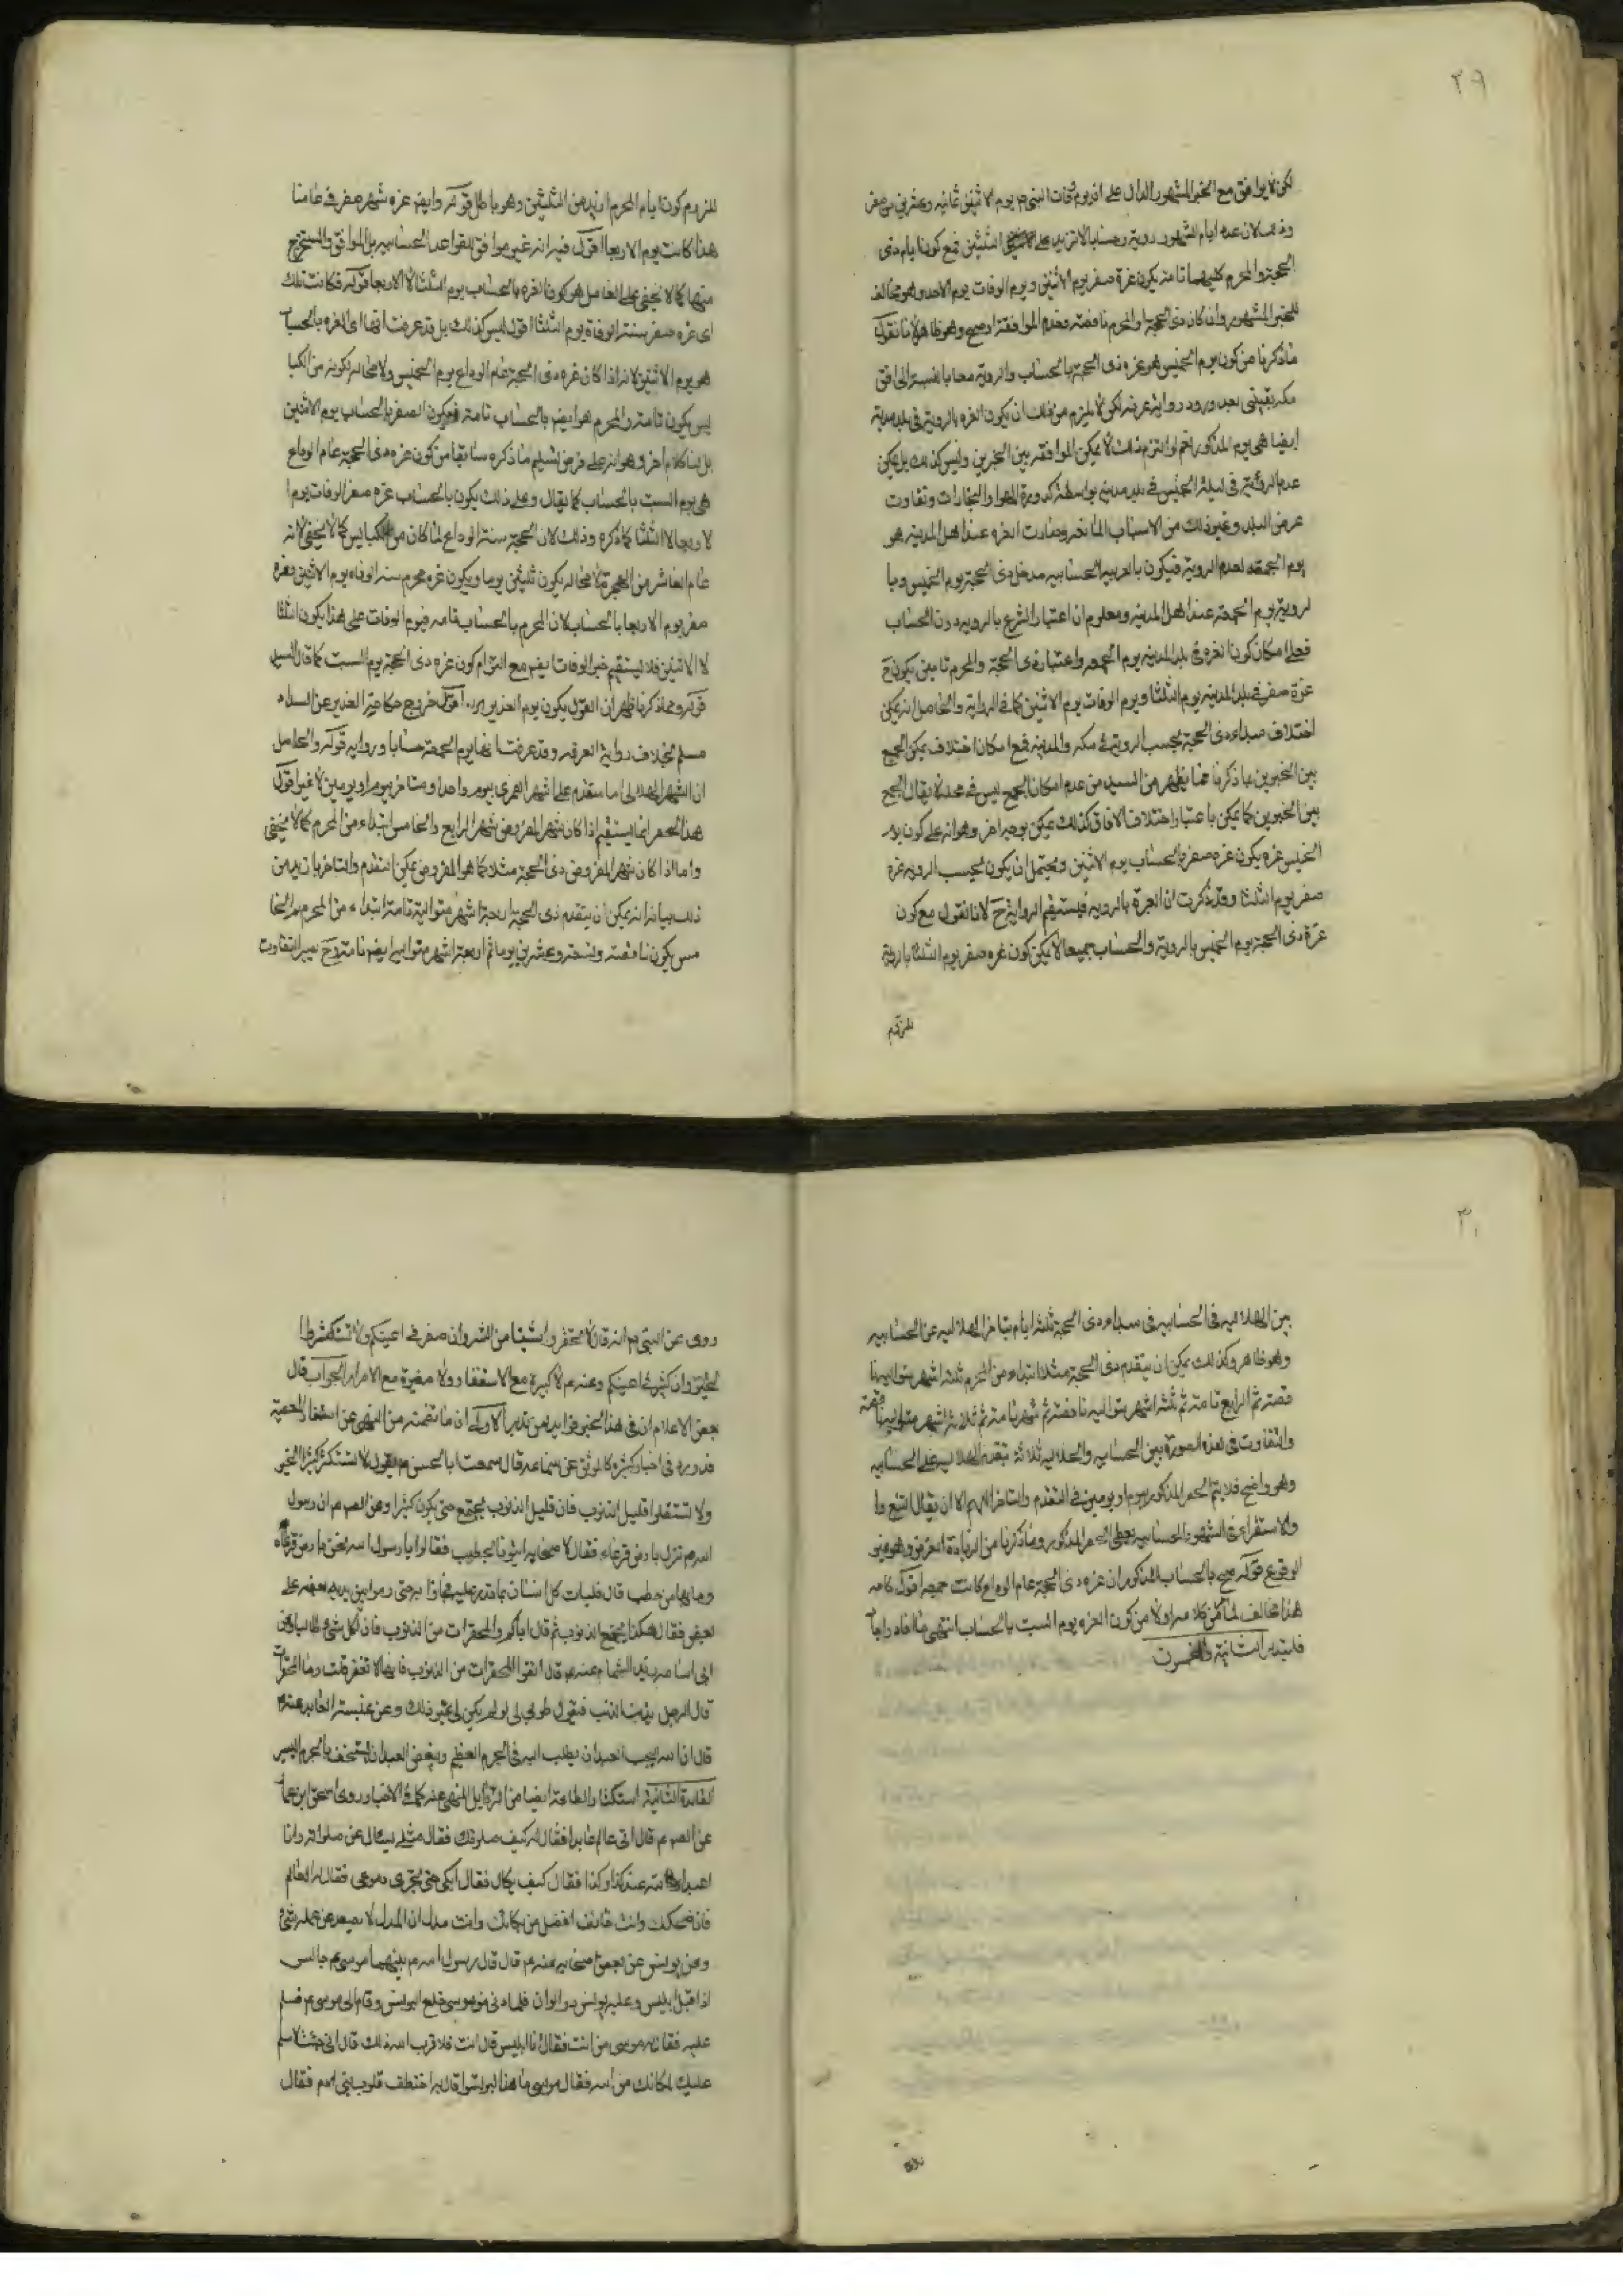 ٢٩
لكن لا يوافق مع الخبر المشهور الدال على ان يوم وفات النبي ص يوم الاثنين ثمانيه وعشرين من صفر
وذلك لان عده ايام الشهور روية وحسابا لا تزيد على الثلثين فمع كون ايام ذى
الحجة والمحرم كليهما تامة يكون غرة صفر يوم الاثنين ويوم الوفات يوم الاحد وهو مخالف
للخبر المشهور وان كان ذى الحجة والمحرم ناقصة فعدم الموافقة اوضح وهو ظاهر لانا نقول
ماذكرنا من كون يوم الخميس هو غره ذى الحجة بالحساب والروية معا بالنسبة الى افق
مكه يقينى بعد ورود رواية عرفه لكن لا يلزم من ذلك ان يكون الغره بالروية فى بلد مدينة
ايضا هى يوم المذكور نعم لو التزم ذلك لا يمكن الموافقه بين الخبرين وليس كذلك بل يمكن
عدم الرؤية فى ليلة الخميس فى بلد مدينه بواسطة كدورة الهوا والبخارات وتفاوت
عرض البلد وغير ذلك من الاسباب المانعه وصارت الغره عند اهل المدينه هو
يوم الجمعه لعدم الروية فيكون بالعربيه الحسابيه مدخل ذى الحجة يوم الخميس وبا
لروية يوم الجمعة عند اهل المدينه ومعلوم ان اعتبار الشرع بالرويه دون الحساب
فعلى امكان كون الغره فى بلد المدينه يوم الجمعه واعتبار ذى الحجة والمحرم تامين يكون ح
غرة صفر فى بلد المدينه يوم الثلثا ويوم الوفات يوم الاثنين كما فى الرواية والحاصل انه يمكن
اختلاف مبداء ذى الحجة بحسب الروية فى مكه والمدينه فمع امكان اختلاف يمكن الجمع
بين الخبرين بما ذكرنا فما يظهر من السيد من عدم امكان الجمع ليس فى محله لا يقال الجمع
بين الخبرين كما يمكن باعتبار اختلاف الافاق كذلك يمكن بوجه اخر وهو انه على كون يوم
الخميس غره يكون غره صفر بالحساب يوم الاثنين ويحتمل ان يكون بحسب الرويه غرة
صفر يوم الثلثا وقد ذكرت ان العبرة بالرويه فيستقيم الرواية ح لانا نقول مع كون
غرة ذى الحجة يوم الخميس بالروية والحساب جميعا لا يمكن كون غره صفر يوم الثلثا بالروية
للزوم
للزوم كون ايام المحرم ازيد من الثلثين وهو باطل قوله وايضا غره شهر صفر فى عامنا
هذا كانت يوم الاربعا اقول فيه انه غير موافق للقواعد الحسابيه بل الموافق والمستخرج
منها كما لا يخفى على الفاضل هو كون الغره بالحساب يوم الثلثا لا الاربعا قوله فكانت تلك
اى غره صفر سنة الوفاة يوم الثلثا اقول ليس كذلك بل قد عرفت انها اى الغره بالحساب
هو يوم الاثنين لانه اذا كان غره ذى الحجة عام الوداع يوم الخميس ولا محاله لكونه من الكبا
يس يكون تامة والمحرم هو ايضا بالحساب تامة فيكون الصفر بالحساب يوم الاثنين
بل لنا كلام اخر وهو انه على فرض تسليم ما ذكره سابقا من كون غره ذى الحجة عام الوداع
هى يوم السبت بالحساب كما يقال وعلى ذلك يكون بالحساب غره صفر الوفات يوم ا
لاربعا لا الثلثا كما ذكره وذلك لان الحجة سنة الوداع لما كان من الكبايس كما لا يخفى لانه
عام العاشر من الهجرة لا محاله يكون ثلثين يوما ويكون غره محرم سنة الوفاه يوم الاثنين وغره
صفر يوم الاربعا بالحساب لان المحرم بالحساب تامه فيوم الوفات على هذا يكون الثلثا
لا الاثنين فلا يستقيم خبر الوفات ايضا مع التزام كون غره ذى الحجة يوم السبت كما قال السيد
قوله ومما ذكرنا ظهر ان القول بكون يوم الغدير اقول خروج حكاية الغدير عن السداد
مسلم بخلاف رواية العرفه وقد عرفت انها يوم الجمعة حسابا وروايه قوله والحاصل
ان الشهر الهلالى اما متقدم على شهر القمرى بيوم واحد او متاخر بيوم او يومين لا غير اقول
هذا الحصر انما يستقيم اذا كان شهر المفروض شهر الرابع والخامس ابتداء من المحرم كما لا يخفى
واما اذا كان شهر المفروض ذى الحجة مثلا كما هو المفروض يمكن التقدم والتاخر بازيد من
ذلك بيانه انه يمكن ان يتقدم ذى الحجة اربعة اشهر متوالية تامة ابتداء من المحرم ثم الخا
مس يكون ناقصة وتسعة وعشرين يوما ثم اربعة اشهر متواليه ايضا تامة وح يصير التفاوت
٣٠
بين الهلاليه فى الحسابيه فى مبداء ذى الحجة ثلثه ايام بتاخر الهلاليه عن الحسابيه
وهو ظاهر وكذلك يمكن ان يتقدم ذى الحجة مثلا ابتداء من المحرم ثلثه اشهر متواليه نا
قصة ثم الرابع تامة ثم ثلثه اشهر متواليه ناقصة ثم شهر تامة ثم ثلاثة اشهر متواليه ناقصة
والتفاوت فى هذه الصورة بين الحسابيه والهلاليه ثلاثة بتقدم الهلاليه على الحسابيه
وهو واضح فلا يتم الحصر المذكور بيوم او يومين فى التقدم والتاخر اللهم الا ان يقال التتبع وا
والاستقراء فى الشهور الحسابيه يعطى الحصر المذكور وماذكرنا من الزيادة الفرض وهو غير
الوقوع قوله صح بالحساب المذكور ان غره ذى الحجة عام الوداع كانت جمعه اقول كلامه
هذا مخالف لما من كلامه اولا من كون الغره يوم السبت بالحساب انتهى ما افاد واجاد
فليتدبر
روى عن النبى ص انه قال لا تحقروا شيئا من الشر وان صغر فى اعينكم ولا تستكثروا
الخير وان كثر فى اعينكم وعنه ع لا كبيرة مع الاستغفار ولا صغيرة مع الاصرار الجواب قال
بعض الاعلام ان فى هذا الخبر فوايد من تدبر الاولى ان ما تضمنه من النهى عن استصغار المعصية
قد ورد فى اخبار كثيره كالموثق عن سماعه قال سمعت ابا الحسن ع يقول لا تستكثروا كثير الخير
ولا تستقلوا قليل الذنوب فان قليل الذنوب يجتمع حتى يكون كثيرا وعن الص ع ان رسول
الله ص نزل بارض قرعاء فقال لاصحابه ايتونا بحطب فقالوا يا رسول الله نحن بارض قرعاء
وما بها من حطب قال فليات كل انسان بما قدر عليه فجاؤا به حتى رموا بين يديه بعضه على
بعض فقال هكذا يجتمع الذنوب ثم قال اياكم والمحقرات من الذنوب فان لكل شىء طالبا وعن
ابى اسامه زيد الشحام عنه ع قال اتقوا المحقرات من الذنوب فانها لا تغفر قلت وما المحقرات
قال الرجل يذنب الذنب فيقول طوبى لى لو لم يكن لى غير ذلك وعن عنبسة العابد عنه ع
قال ان الله يحب العبد ان يطلب اليه فى الجرم العظيم ويبغض العبد ان يستخف بالجرم اليسير
الفايدة الثانية استكثار الطاعة ايضا من الرذايل المنهى عنه كما فى الاخبار روى اسحق ابن عمار
عن الص ع قال اتى عالم عابدا فقال له كيف صلوتك فقال مثلى يسئال عن صلوته وانا
اعبد الله منذ كذا وكذا فقال كيف بكاك فقال ابكى حتى تجرى دموعى فقال له العالم
فان ضحكك وانت خائف افضل من بكائك وانت مدل ان المدل لا يصعد عن عمله شىء
وعن يونس عن بعض اصحابه عنه ع قال قال رسول الله ص بينهما موسى ع جالس
اذا قبل ابليس وعليه برنس ذو الوان فلما دنى من موسى خلع البرنس وقام الى موسى ع فسلم
عليه فقال له موسى من انت فقال انا ابليس قال انت فلا قرب الله دارك قال انى جئت لاسلم
عليك لمكانك من الله فقال موسى ما هذا البرنس قال به اختطف قلوب بنى ادم فقال